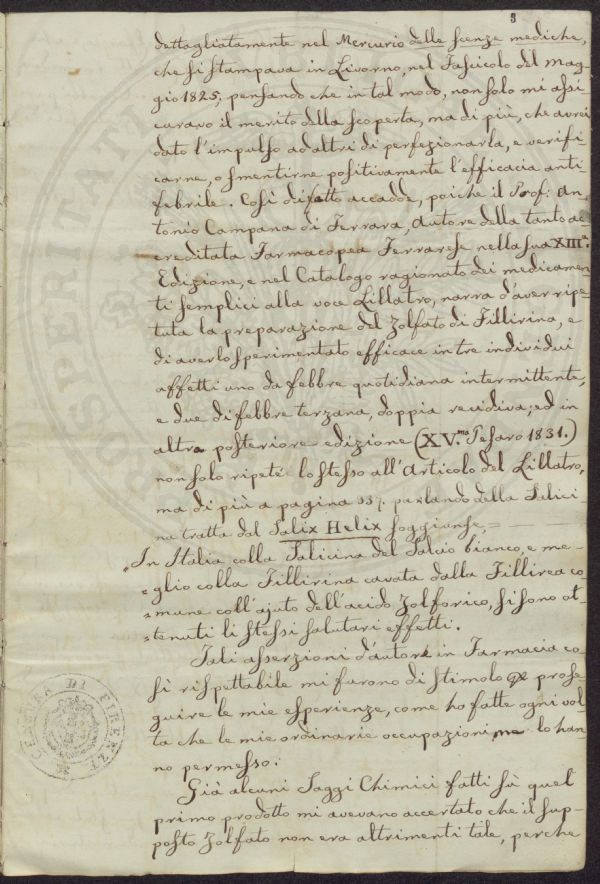 3
dettagliatamente nel Mercurio delle scenze mediche,
che si stampava in Livorno, nel Fascicolo del Mag-
gio 1825; pensando che in tal modo, non solo mi assi
curavo il merito della scoperta, ma di più, che avrei
dato l'impulso ad altri di perfezionarla, e verifi-
carne, o smentirne positivamente l'efficacia anti-
febrile. Così difatto accadde, poichè il Prof: An-
tonio Campana di Ferrara, Autore della tanto ac
creditata Farmacopea Ferrarese nella sua XIII.ª
Edizione, e nel Catalogo ragionato dei medicamen
ti semplici alla voce Lillatro, narra d'aver ripe-
tuta la preparazione del Zolfato di Fillirina, e
di averlo sperimentato efficace in tre individui
affetti uno da febbre quotidiana intermittente,
e due di febbre terzana, doppia recidiva; ed in
altra posteriore edizione (XV.ma Pesaro 1831.)
non solo ripetè lo stesso all'Articolo del Lillatro,
ma di più a pagina 337. parlando della Salici
na tratta dal Salix Helix soggiunse =
"In Italia colla Salicina del Salcio bianco, e me-
"glio colla Fillirina cavata dalla Fillirea co-
"mune coll'ajuto dell'acido Zolforico, si sono ot-
"tenuti li stessi salutari effetti.
Tali asserzioni d'autore in Farmacia co
sì rispettabile mi furono di stimolo a prose
guire le mie esperienze, come ho fatte ogni vol-
ta che le mie ordinarie occupazioni me lo han-
no permesso.
Già alcuni Saggi Chimici fatti sù quel
primo prodotto mi avevano accertato che il sup-
posto Zolfato non era altrimenti tale, perche
CENSURA DI FIRENZE
PROSPERITATI